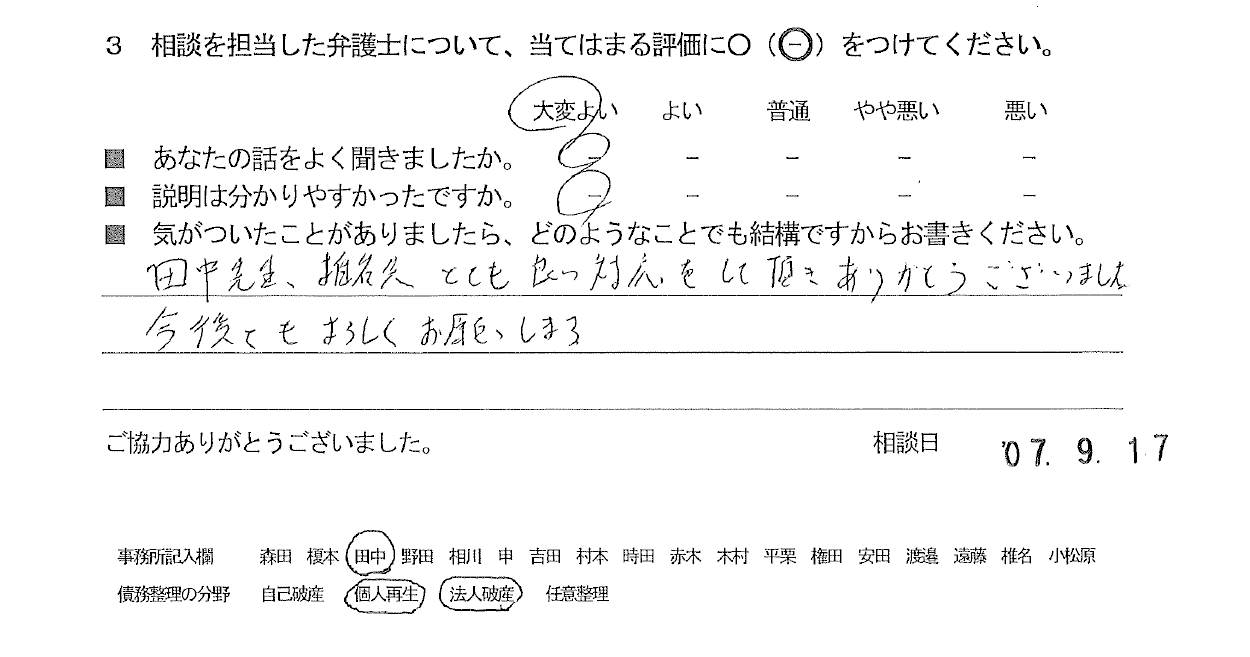 3 相談を担当した弁護士について、当てはまる評価に○（⊖）をつけてください。
大変よい よい 普通 やや悪い 悪い
■ あなたの話をよく聞きましたか。 － － － － －
■ 説明は分かりやすかったですか。 － － － － －
■ 気がついたことがありましたら、どのようなことでも結構ですからお書きください。
田中先生、椎名先 とても 良い 対応 をして頂き ありがとうございました
今後とも よろしく お願いします
ご協力ありがとうございました。 相談日 '07. 9. 17
事務所記入欄 森田 榎本 田中 野田 相川 申 吉田 村本 時田 赤木 木村 平栗 権田 安田 渡邉 遠藤 椎名 小松原
債務整理の分野 自己破産 個人再生 法人破産 任意整理